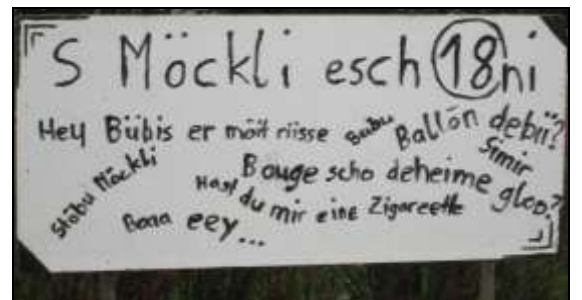 S Möckli esch 18ni
Hey Bübis er möit riisse
Bubu
Ballón debii?
Simir
Stöbu Möckli
Bouge scho deheime gloo?
Hast du mir eine Zigareette
Baaa eey...